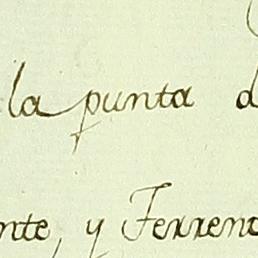 la punta d
nte, y Ferrent